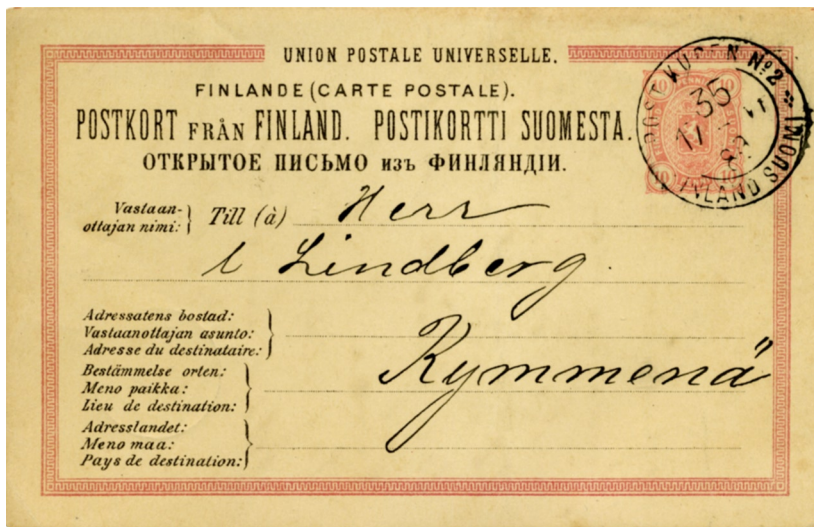 UNION POSTALE UNIVERSELLE.
FINLANDE (CARTE POSTALE).
POSTKORT FRÅN FINLAND. POSTIKORTTI SUOMESTA.
ОТКРЫТОЕ ПИСЬМО изъ ФИНЛЯНДІИ.
POSTKUPEN No 2
FINLAND SUOMI
35
10 10
10 10
Vastaan-
ottajan nimi: Till (à) Herr
Lindberg
Adressatens bostad:
Vastaanottajan asunto:
Adresse du destinataire:
Kymmenä
Bestämmelse orten:
Meno paikka:
Lieu de destination:
Adresslandet:
Meno maa:
Pays de destination: